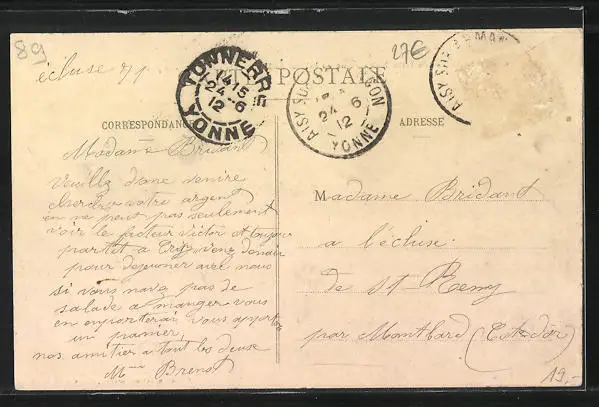 89
27€
écluse 79
CARTE POSTALE
TONNERRE
1415
24-6
12
YONNE
AISY SUR ARMANÇON
24 6
12
YONNE
AISY SUR ARMAN
CORRESPONDANCE
ADRESSE
Madame Bridant
Veuillz donc venire
cherch votre argent
on ne peut pas seulement
voir le facteur victor et toujour
partit a venez
pour dejeuner avec nous
si vous nava pas de
salade a manger vous
en onporterai vous apporte
un panier
nos amitier a tout les deuse
Mme Brenot
Madame Bridant
a l'écluse
de St Remy
par Montbard (Cote d'or)
19,-